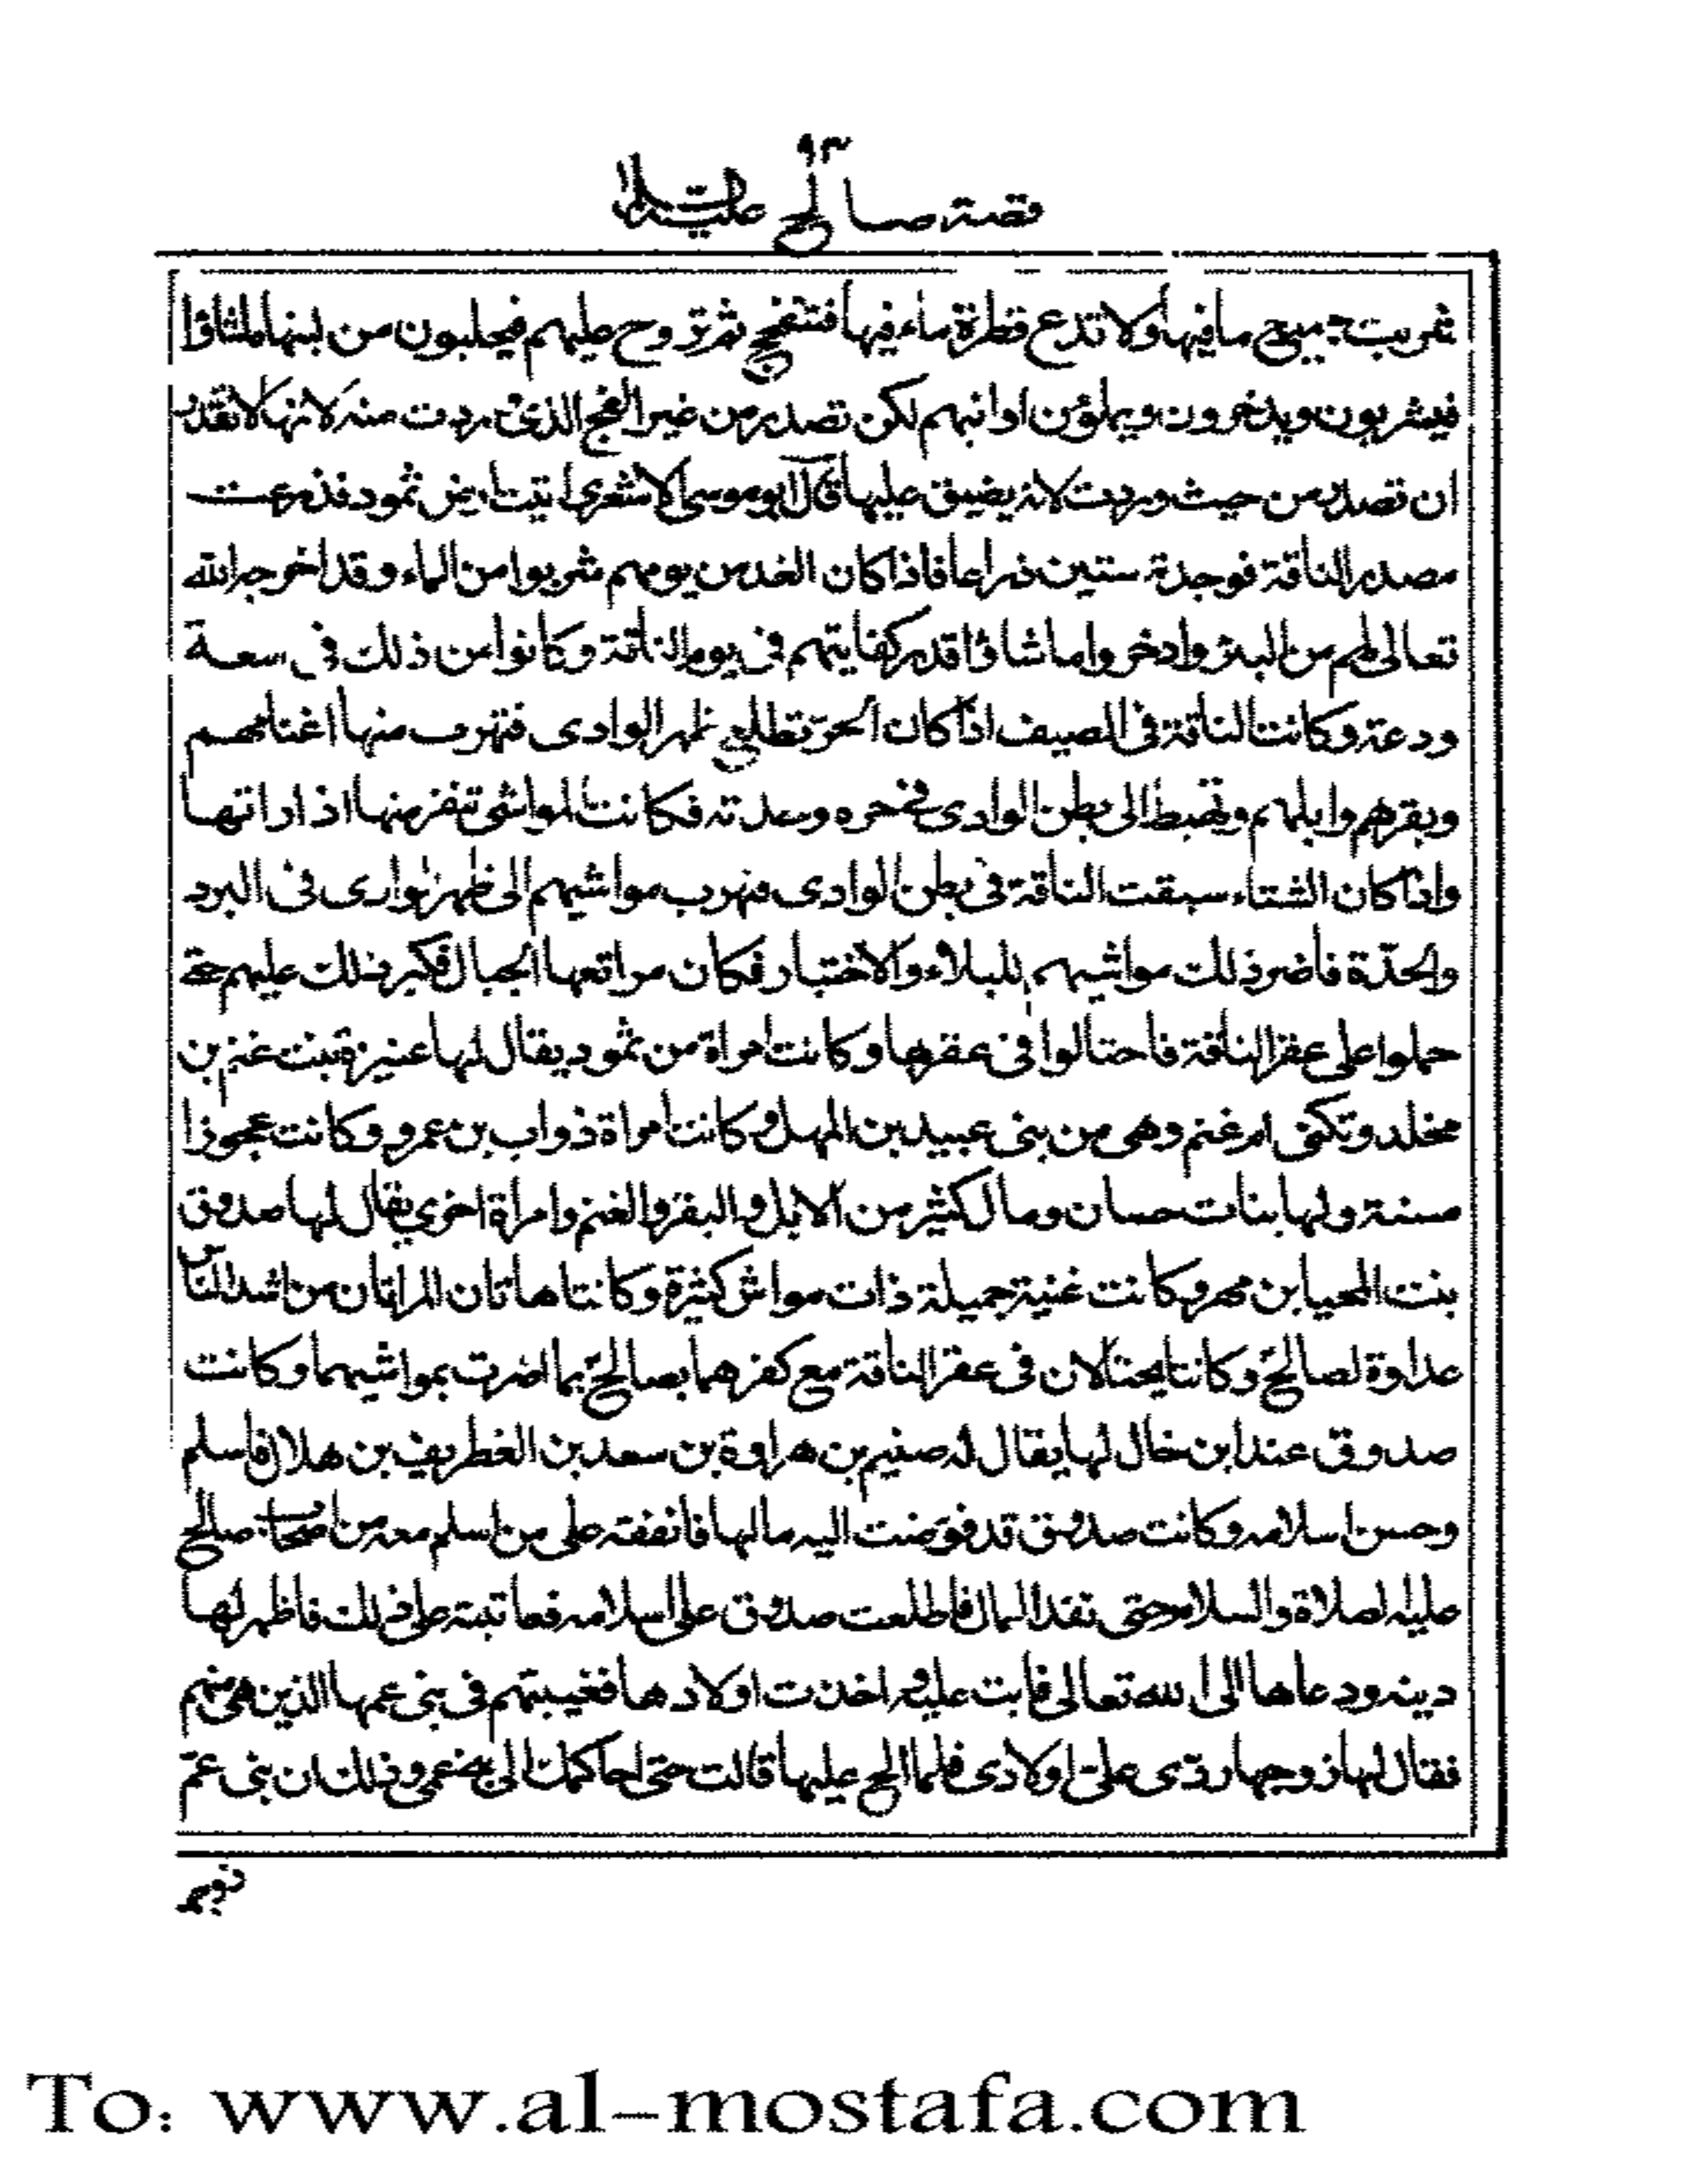 ٩٣
قصة صالح عليه السلام
جميع ما فيها ولا تدع قطرة ماء فيها فتتفجج ثم تروح عليهم فيحلبون من لبنها ما شاؤا
فيشربون ويدخرون ويملؤن اوانيهم لكن تصدر من غير الفج الذى وردت منه لانها لا تقدر
ان تصدر من حيث وردت لانه يضيق عليها قال ابو موسى الاشعرى اتيت ارض ثمود فذرعت
مصدر الناقة فوجدته ستين ذراعا فاذا كان الغد من يومهم شربوا من الماء وقد اخرجه الله
تعالى لهم من البئر وادخروا ما شاؤا قدر كفايتهم فى يوم الناقة وكانوا من ذلك فى سعة
ودعة وكانت الناقة فى الصيف اذا كان الحر تطلع ظهر الوادى فتهرب منها اغنامهم
وبقرهم وابلهم وتهبط الى بطن الوادى فى حره وسدته فكانت المواشى تنفر منها اذا راتها
واذا كان الشتاء سبقت الناقة فى بطن الوادى فتهرب مواشيهم الى ظهر الوادى فى البرد
والحدة فاضر ذلك مواشيهم للبلاء والاختبار فكان مراتعها الجبال فكبر ذلك عليهم حتى
حملوا على عقر الناقة فاحتالوا فى عقرها وكانت امراة من ثمود يقال لها عنيزة بنت غنم بن
مخلد وتكنى ام غنم وهى من بنى عبيد بن المهل وكانت امراة ذواب بن عمرو وكانت عجوزا
مسنة ولها بنات حسان ومال كثير من الابل والبقر والغنم وامراة اخرى يقال لها صدوق
بنت المحيا بن مهر وكانت غنية جميلة ذات مواش كثيرة وكانتا هاتان المراتان من اشد الناس
عداوة لصالح وكانتا يحتالان فى عقر الناقة مع كفرهما بصالح بما اضرت بمواشيهما وكانت
صدوق عند ابن خال لها يقال له صنيم بن هراوة بن سعد بن الغطريف بن هلال فاسلم
وحسن اسلامه وكانت صدوق قد فوضت اليه مالها فانفقته على من اسلم معه من اصحاب صالح
عليه الصلاة والسلام حتى نفد المال فاطلعت صدوق على اسلامه فعاتبته على ذلك فاظهر لها
دينه ودعاها الى الله تعالى فابت عليه واخذت اولادها فغيبتهم فى بنى عمها الذين هى منهم
فقال لها زوجها ردى على اولادى فلما الح عليها قالت حتى احاكمك الى بنى عمى وذلك ان بنى عم
To: www.al-mostafa.com